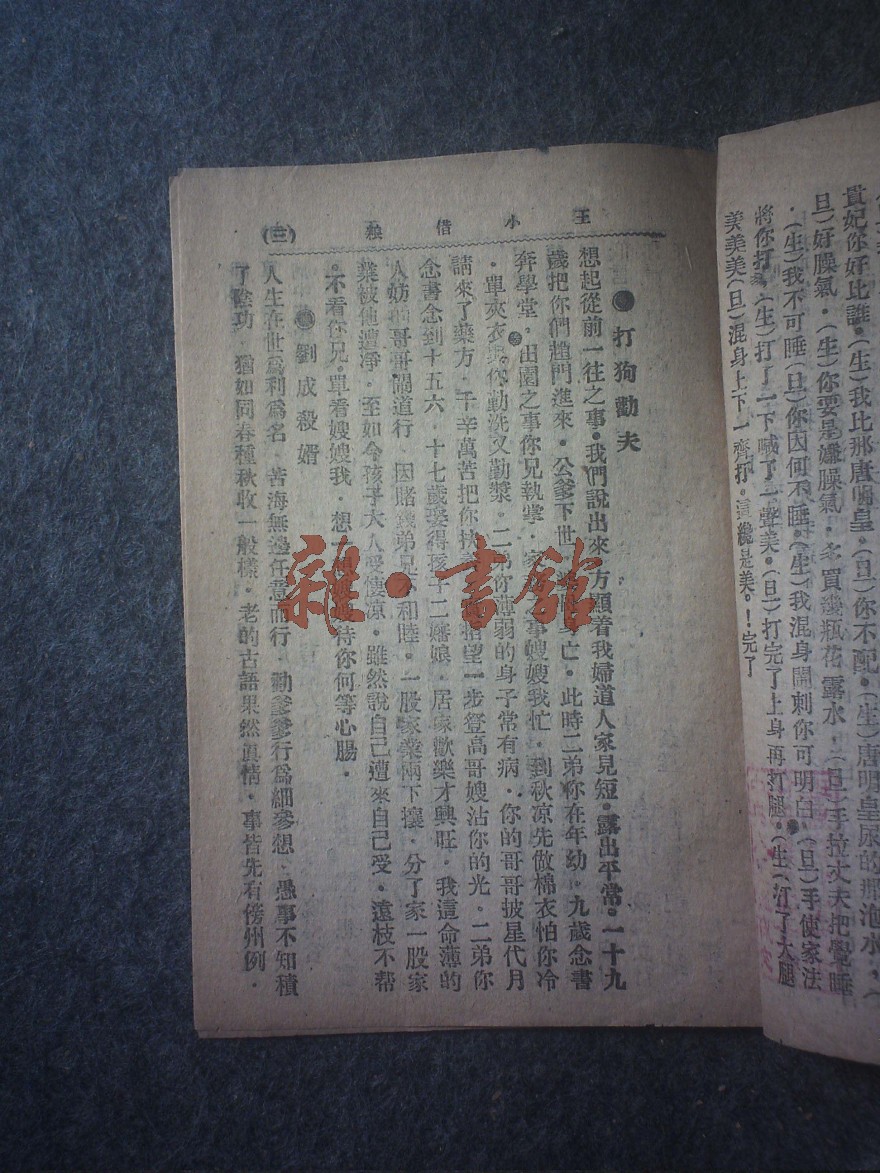 貴妃你好比誰。(生)我比那唐明皇。(旦)你不配。(生)唐明皇尿的那泡水。(
旦)好臊氣。(生)你要是嫌臊氣。多買幾瓶花露水。(旦)手拉丈夫把覺睡
。(生)我不可睡(旦)你因何不睡。(生)我混身鬧刺你可明白。(旦)手使家法
將你打。(生)打了一下喊了一聲美。(旦)打完了上身再打腿。(生)打了大腿
美美美(旦)混身上下一齊打。這纔是美。!完了
王小借秧
(三)
打狗勸夫
想起從前一往之事。我們說出來 方顯着我婦道人家見短。露出平常。一十九
歲把你們趙門進來。公爹下世 亡。此時二弟你在年幼。九歲念書
奔學堂。田園之事你兄執掌。家 之事嫂嫂我忙。到秋凉先做棉衣怕你冷
。單夾衣 你勤洗又勤漿。二 你薄弱的身子常有病。你的哥哥披星代月
請來了藥方。千辛萬苦把你扶 指望一步登高哥嫂沾你的光。二弟你
念書念到十五六。十七歲娶得孩子二嬸娘。居家歡樂才興旺。我這命薄的
人妨的哥哥鬧道行。因賭錢弟兄不和睦。一股家業兩下攘。分了家一股家
業被他遭淨。至如今孩子大人受悽凉。雖然說自己遭來自己受。遠枝不帮
。不看你兄。單看嫂嫂我。想一想 待你何等心腸。
劉成殺婿
人生在世爲利爲名。苦海無邊任意而行。勸爹爹行爲細參想。愚事不知積
了陰功 猶如同春種秋收一般樣。老的古語果然眞情。事皆先有傍州例。
雜·書館